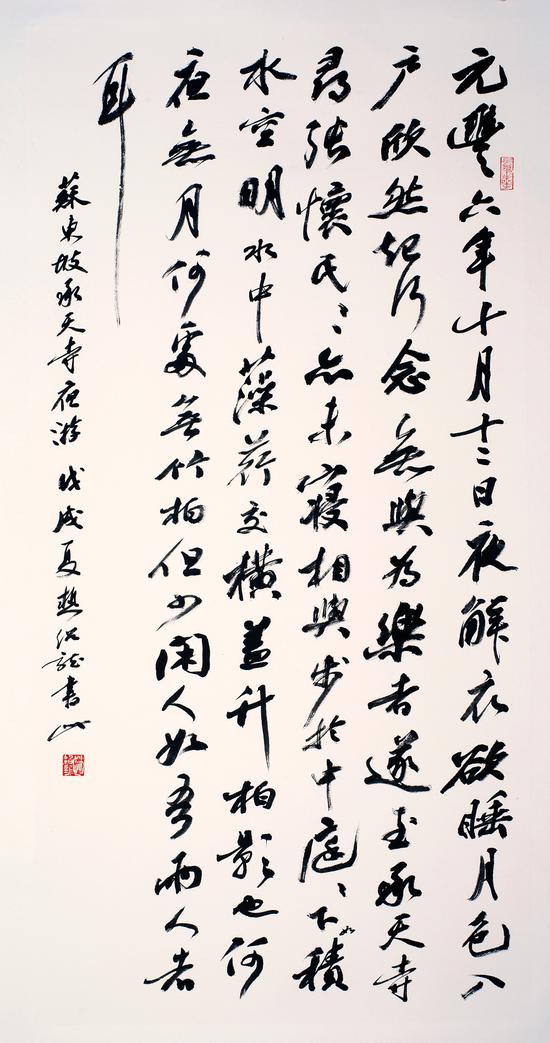 元豐六年十月十二日夜解衣欲睡月色入
户欣然起行念無與為樂者遂至承天寺
尋張懷民〻亦未寢相與步於中庭〻下如積
水空明水中藻荇交橫蓋竹柏影也何
夜無月何處無竹柏但少閑人如吾兩人者
耳
蘇東坡承天寺夜游 戊戌夏趙龍書